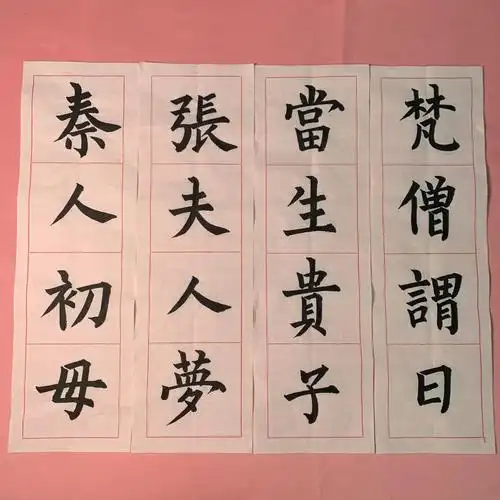 秦人初母
張夫人夢
梵僧謂曰
當生貴子